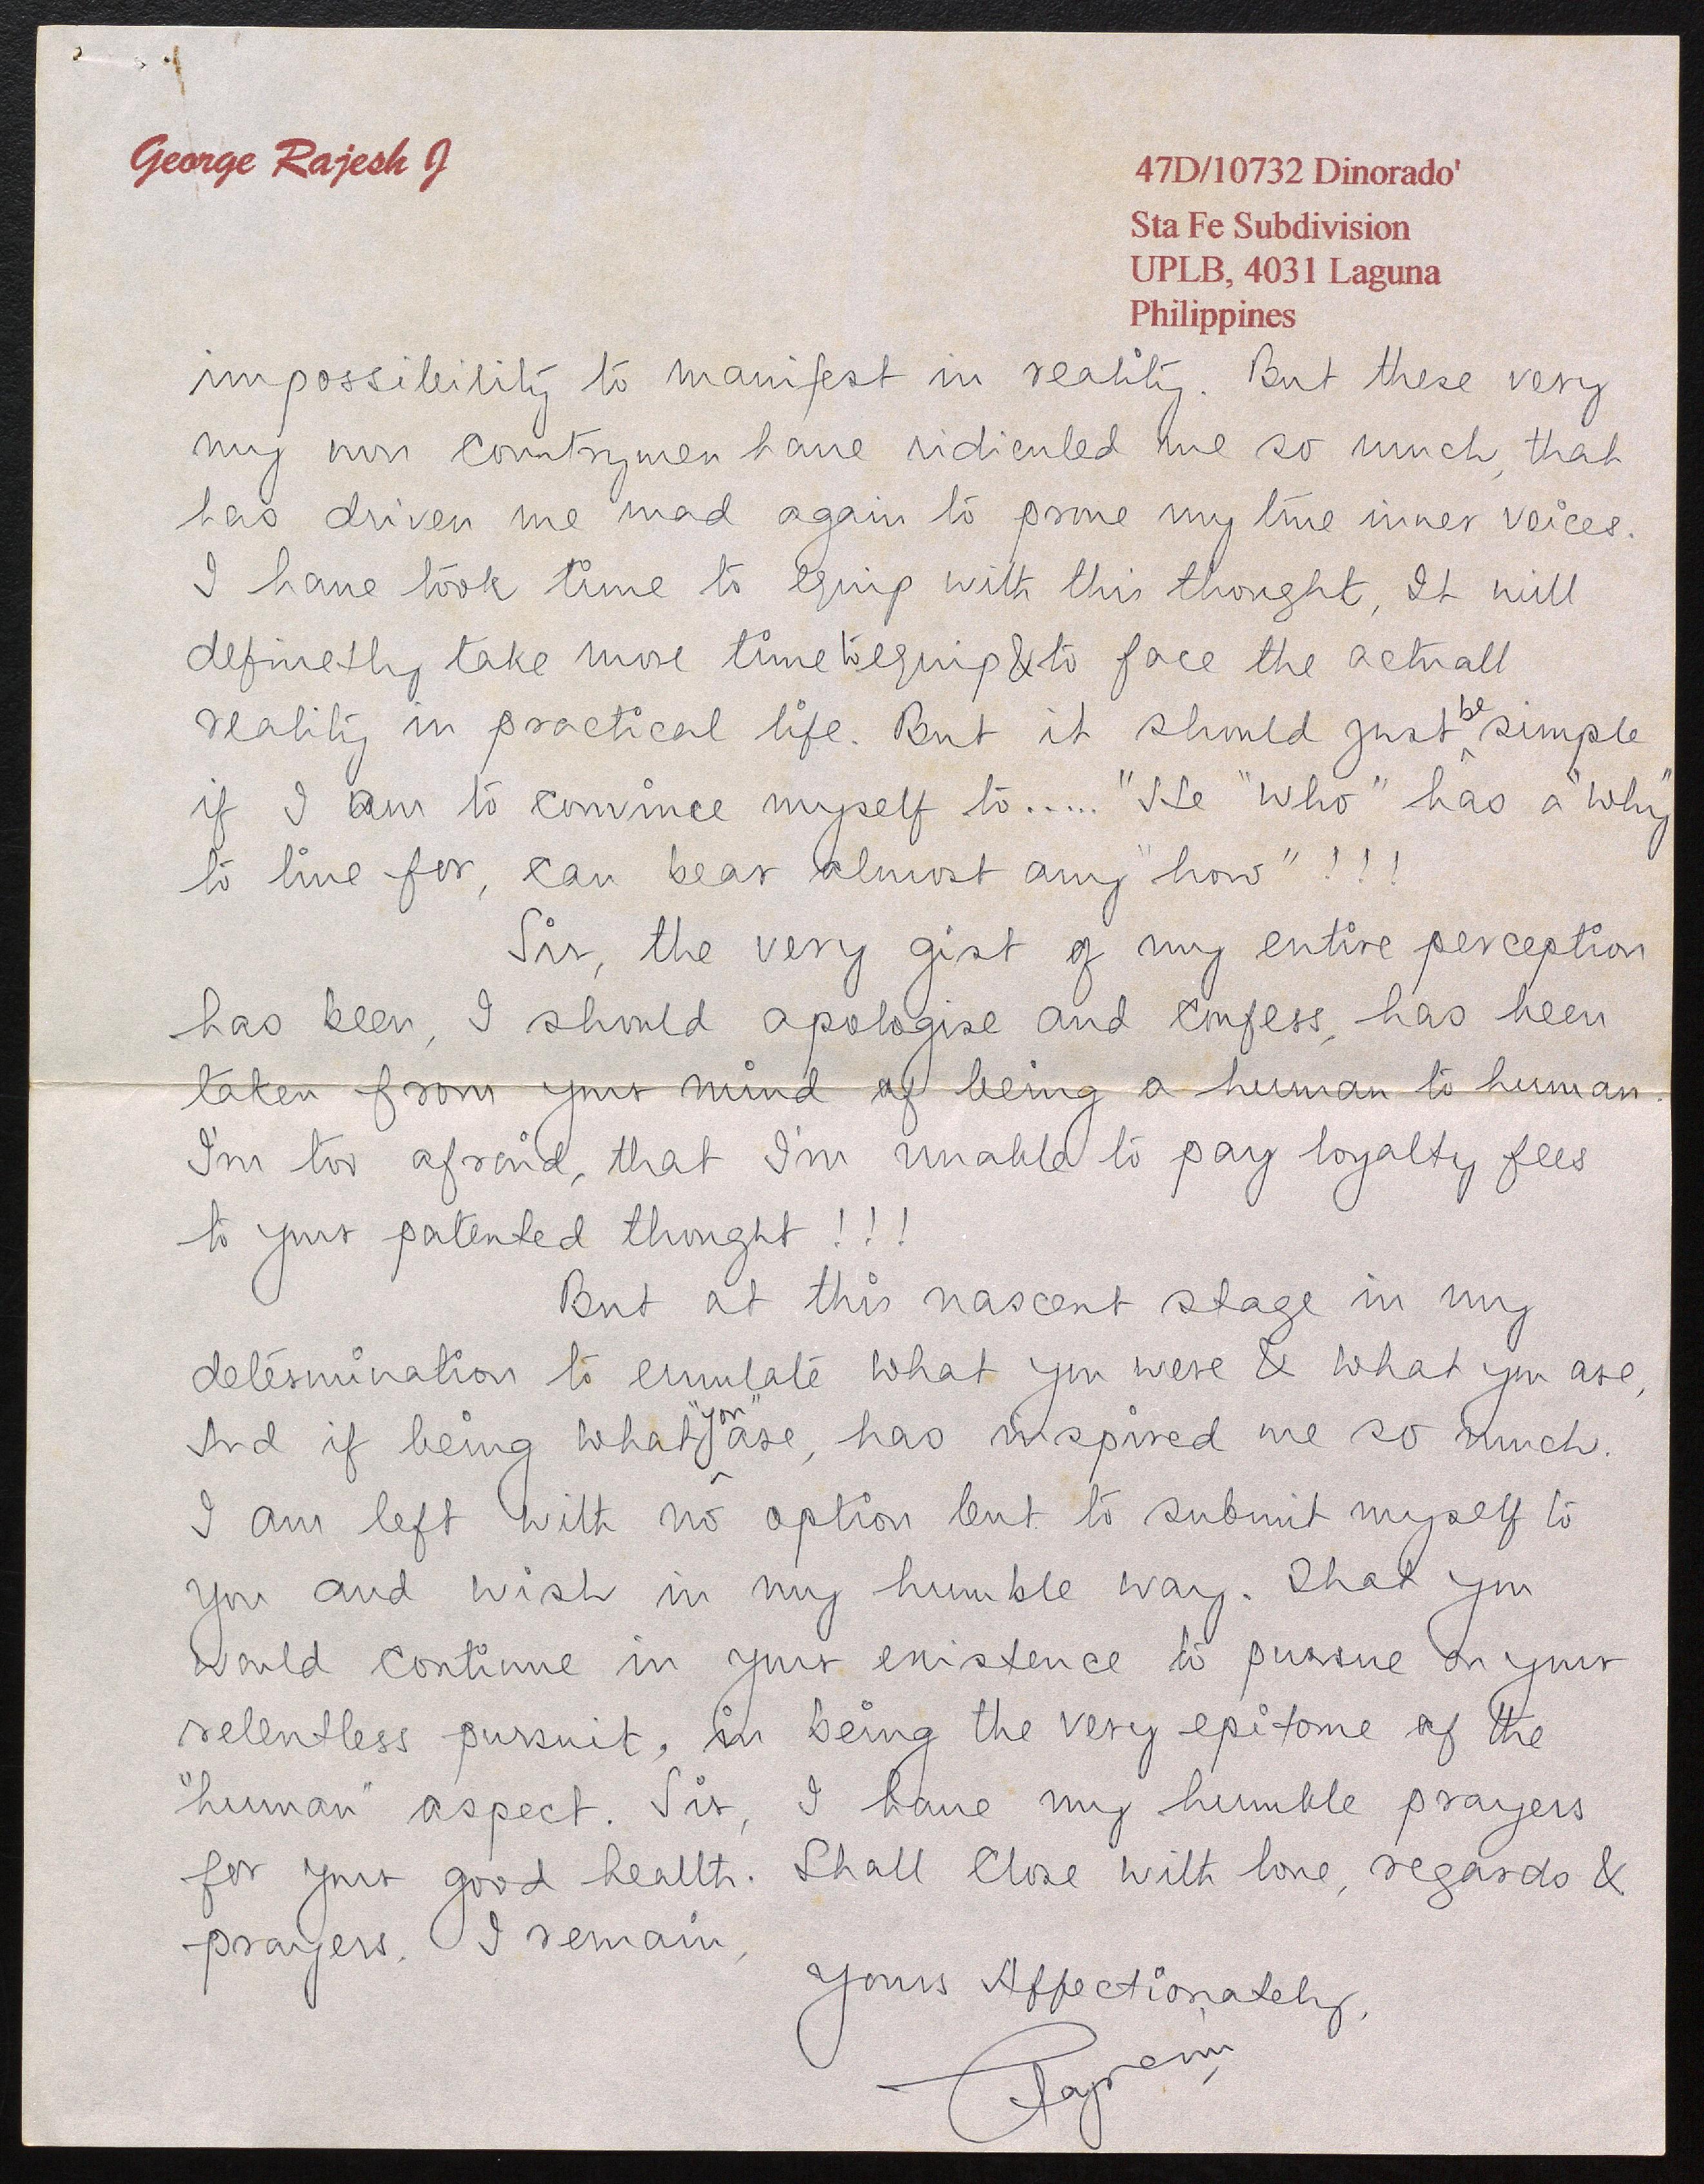 George Rajesh J
47D/10732 Dinorado'
Sta Fe Subdivision
UPLB, 4031 Laguna
Philippines
impossibility to manifest in reality. But these very
my own countrymen have ridiculed me so much, that
has driven me mad again to prove my true inner voices.
I have took time to equip with this thought, It will
definethy take more time to equip & to face the actuall
reality in practical life. But it should just be simple
if I am to convince myself to..... "He "who" has a "why"
to live for, can bear almost any "how" !!!
Sir, the very gist of my entire perception
has been, I should apologise and confess, has been
taken from your mind of being a human to human.
I'm too afraid, that I'm unable to pay loyalty fees
to your patented thought !!!
But at this nascent stage in my
determination to emulate what you were & what you are,
And if being what "you" are, has inspired me so much.
I am left with no option but to submit myself to
you and wish in my humble way. That you
would continue in your existence to pursue on your
relentless pursuit, in being the very epitome of the
"human" aspect. Sir, I have my humble prayers
for your good health. Shall close with love, regards &
prayers. I remain,
Yours Affectionately,